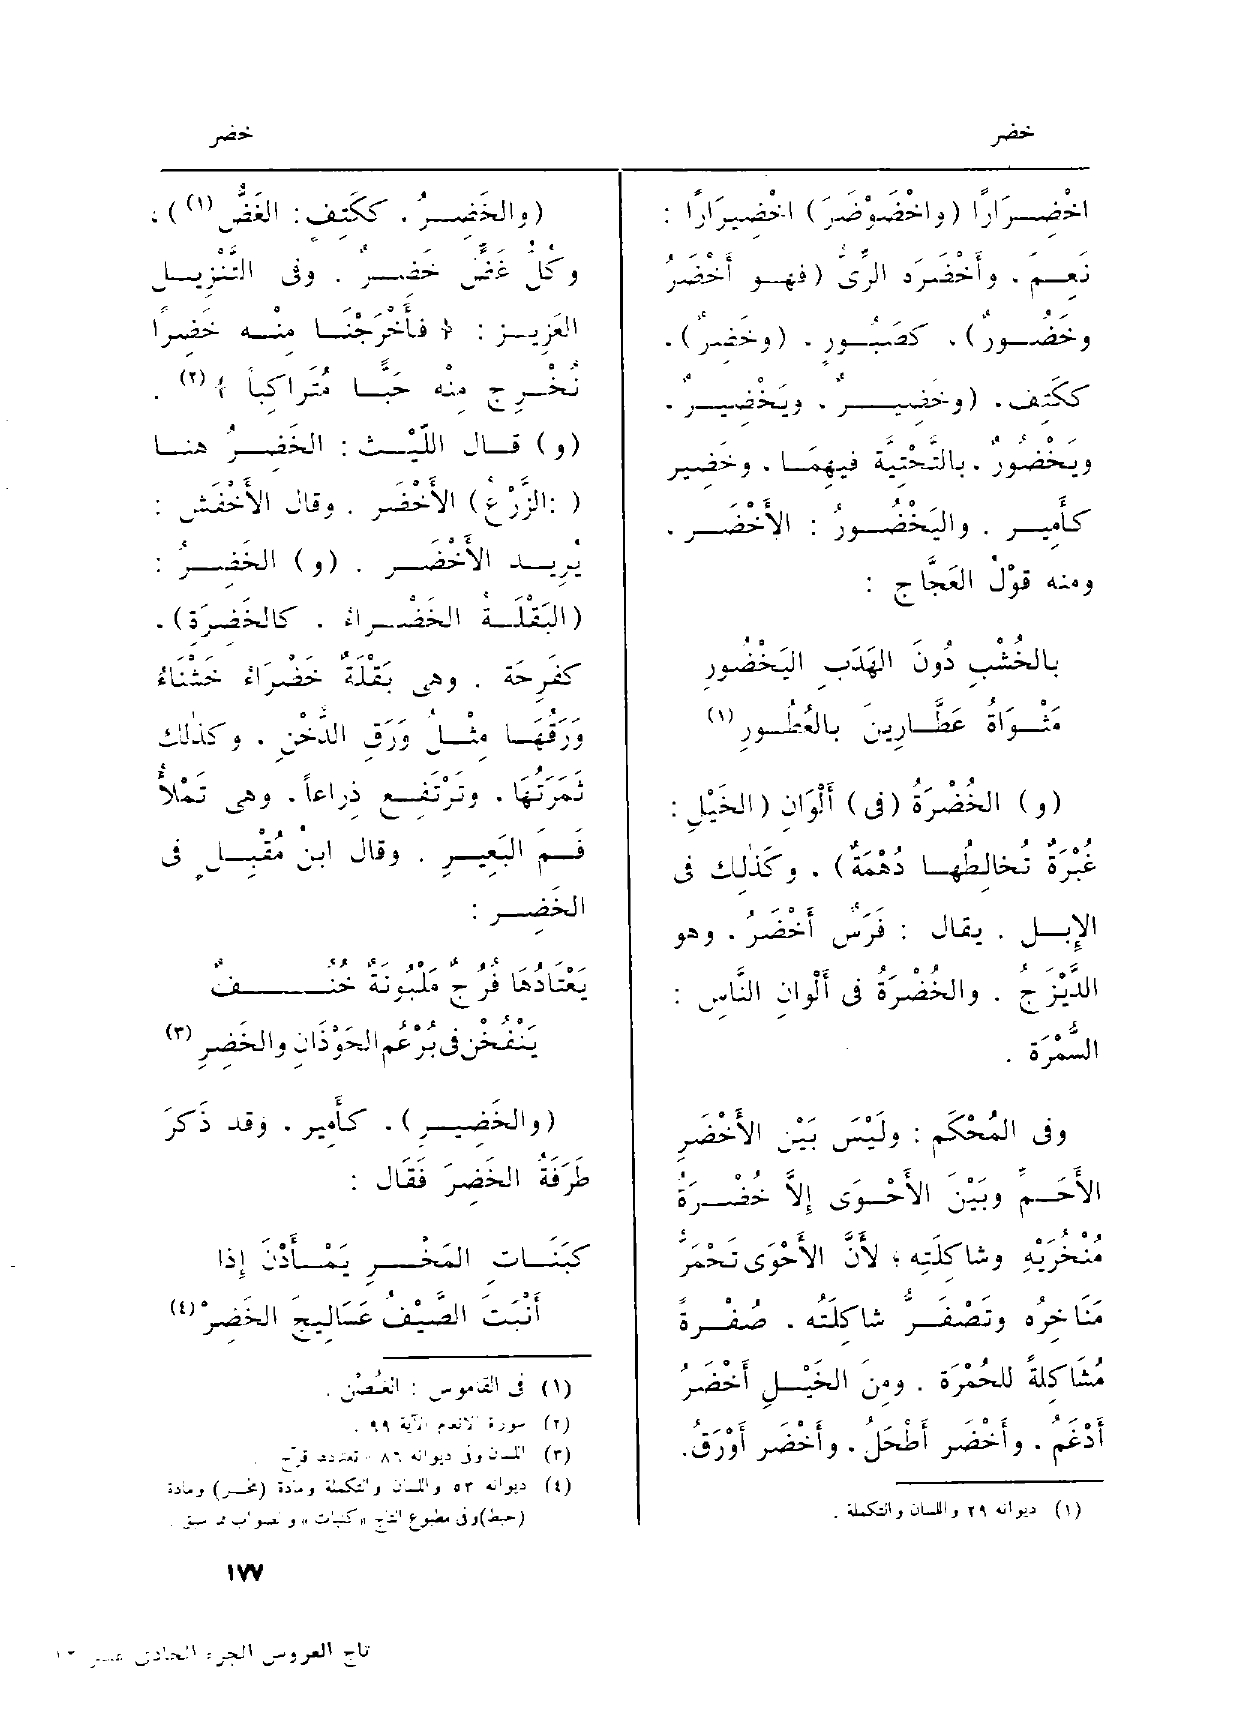 خضر
خضر
اخْضِرَارًا (واخْضَوْضَرَ) اخْضِيرَارًا :
نَعِمَ . وأَخْضَرَه الرِّىُّ (فهو أَخْضَرُ
وخَضُورٌ) ، كصَبُورٍ ، (وخَضِرٌ) ،
ككَتِفٍ ، (وخَضِيرٌ ، ويَخْضِيرٌ ،
ويَخْضُورٌ ، بالتَّحْتِيّة فيهِمَا ، وخَضِير
كأَمِيرٍ . واليَخْضُورُ : الأَخْضَر ،
ومنه قوْلُ العَجَّاج :
بالخُشْبِ دُونَ الهَدَبِ اليَخْضُورِ
مَثْوَاةُ عَطَّارِينَ بالعُطُورِ (١)
(و) الخُضْرَةُ (فى) أَلْوَانِ (الخَيْلِ :
غُبْرَةٌ تُخالِطُها دُهْمَةٌ) ، وكَذٰلِك فى
الإِبِل . يقال : فَرَسٌ أَخْضَرُ ، وهو
الدَّيْزَجُ . والخُضْرَةُ فى أَلْوانِ النَّاسِ :
السُّمْرَة .
وفى المُحْكَم : ولَيْسَ بَيْن الأَخْضَرِ
الأَحَمِّ وبَيْنَ الأَحْوَى إِلاَّ خُضْرَةُ
مُنْخُرَيْهِ وشاكِلَتِه ؛ لأَنَّ الأَحْوَى تَحْمَرُّ
مَنَاخِرُه وتَصْفَرُّ شاكِلَتُه ، صُفْرةً
مُشَاكِلَةً للحُمْرَة . ومِنَ الخَيْلِ أَخْضَرُ
أَدْغَمُ ، وأَخْضَر أَطْحَلُ ، وأَخْضَر أَوْرَقُ.
(١) ديوانه ٢٩ واللسان والتكملة .
(والخَضِرُ ، ككَتِف : الغَضُّ (١)) ،
وكُلُّ غَضٍّ خَضِرٌ . وفى التَّنْزِيل
العَزِيز : ﴿ فأَخْرَجْنَا مِنْه خَضِرًا
نُخْرِج مِنْه حَبًّا مُتَراكِباً ﴾ (٢) .
(و) قال اللَّيْث : الخَضِرُ هنا
( :الزَّرْعُ) الأَخْضَر . وقال الأَخْفَش :
يُرِيد الأَخْضَر . (و) الخَضِرُ :
(البَقْلَةُ الخَضْراءُ ، كالخَضِرَة) ،
كفَرِحَة . وهى بَقْلَةٌ خَضْرَاءُ خَشْنَاءُ
وَرَقُهَا مثْلُ وَرَقِ الدُّخْنِ ، وكذٰلك
ثَمَرَتُهَا ، وتَرْتَفِع ذِراعاً ، وهى تَمْلأُ
فَمَ البَعِيرِ . وقال ابنُ مُقْبِلٍ فى
الخَضِر :
يَعْتَادُهَا فُرُجٌ مَلْبُونَةٌ خُنُفٌ
يَنْفُخْن فى بُرْعُمِ الحَوْذَانِ والخَضِرِ (٣)
(والخَضِيرِ) ، كأَمِير ، وقد ذَكَرَ
طَرَفَةُ الخَضِرَ فَقَال :
كبَنَاتِ المَخْرِ يَمْأَدْنَ إِذا
أَنْبَتَ الصَّيْفُ عَسَالِيجَ الخَضِرْ (٤)
(١) فى القاموس : الغُصْن .
(٢) سورة الأنعام الآية ٩٩ .
(٣) اللسان وفى ديوانه ٨٦ « تعتاده قرح .
(٤) ديوانه ٥٣ واللسان والتكملة ومادة (مخر) ومادة
وفى مطبوع التاج «كنبات» والصواب مما سبق .
١٧٧
تاج العروس الجزء الحادى عشر